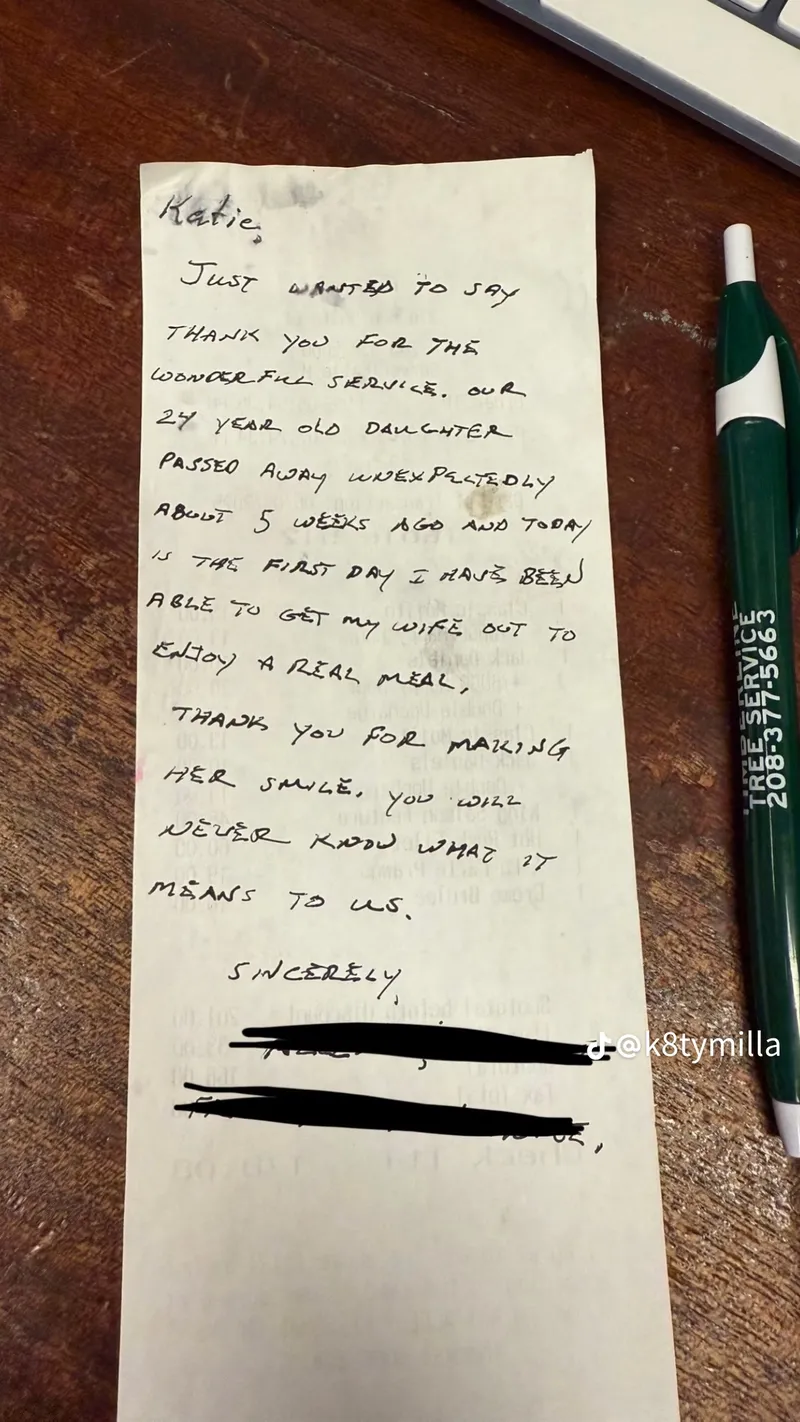 Katie,
JUST WANTED TO SAY
THANK YOU FOR THE
WONDERFUL SERVICE. OUR
24 YEAR OLD DAUGHTER
PASSED AWAY UNEXPECTEDLY
ABOUT 5 WEEKS AGO AND TODAY
IS THE FIRST DAY I HAVE BEEN
ABLE TO GET MY WIFE OUT TO
ENJOY A REAL MEAL,
THANK YOU FOR MAKING
HER SMILE. YOU WILL
NEVER KNOW WHAT IT
MEANS TO US.
SINCERELY,
@k8tymilla
TREE SERVICE
208-377-5663